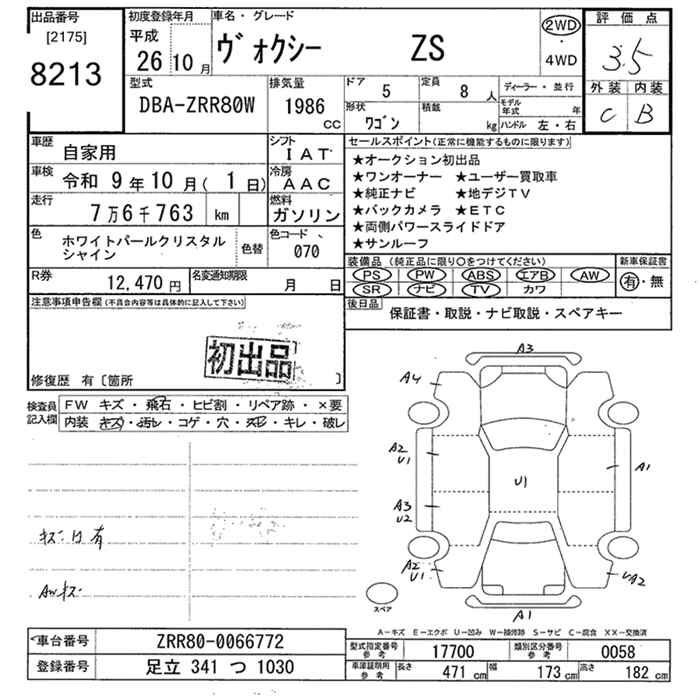 出品番号
[2175]
8213
初度登録年月
平成
26 10月
車名・グレード
ヴォクシー ZS
2WD
・
4WD
評価点
3.5
外装 内装
C B
型式
DBA-ZRR80W
排気量
1986 CC
ドア 5
定員 8人
形状 ワゴン
積載 kg
ディーラー・並行
モデル年式 年
ハンドル 左・右
車歴 自家用
車検 令和 9年10月(1日)
走行 7万6千763 km
色 ホワイトパールクリスタル
シャイン
色替
R券 12,470円
名変通知期限 月 日
シフト IAT
冷房 AAC
燃料 ガソリン
色コード 070
セールスポイント(正常に機能するものに限ります)
★オークション初出品
★ワンオーナー ★ユーザー買取車
★純正ナビ ★地デジTV
★バックカメラ ★ETC
★両側パワースライドドア
★サンルーフ
装備品(純正品に限り○をつけてください) 新車保証書
PS PW ABS エアB AW
SR ナビ TV カワ
有・無
後日品
保証書・取説・ナビ取説・スペアキー
注意事項申告欄(不具合内容等は具体的に記入して下さい)
初出品
修復歴 有〔箇所 〕
検査員記入欄
FW キズ・飛石・ヒビ割・リペア跡・×要
内装 キズ・汚レ・コゲ・穴・スレ・キレ・破レ
キズ凹有
AWキズ
A3
A4
A2
U1
A1
U1
A3
U2
A2
U1
UA2
A1
スペア
A-キズ E-エクボ U-凹み W-補修跡 S-サビ C-腐食 XX-交換済
車台番号 ZRR80-0066772
登録番号 足立 341 つ 1030
型式指定番号参考 17700
類別区分番号参考 0058
車庫証明用参考 長さ 471cm 幅 173cm 高さ 182cm